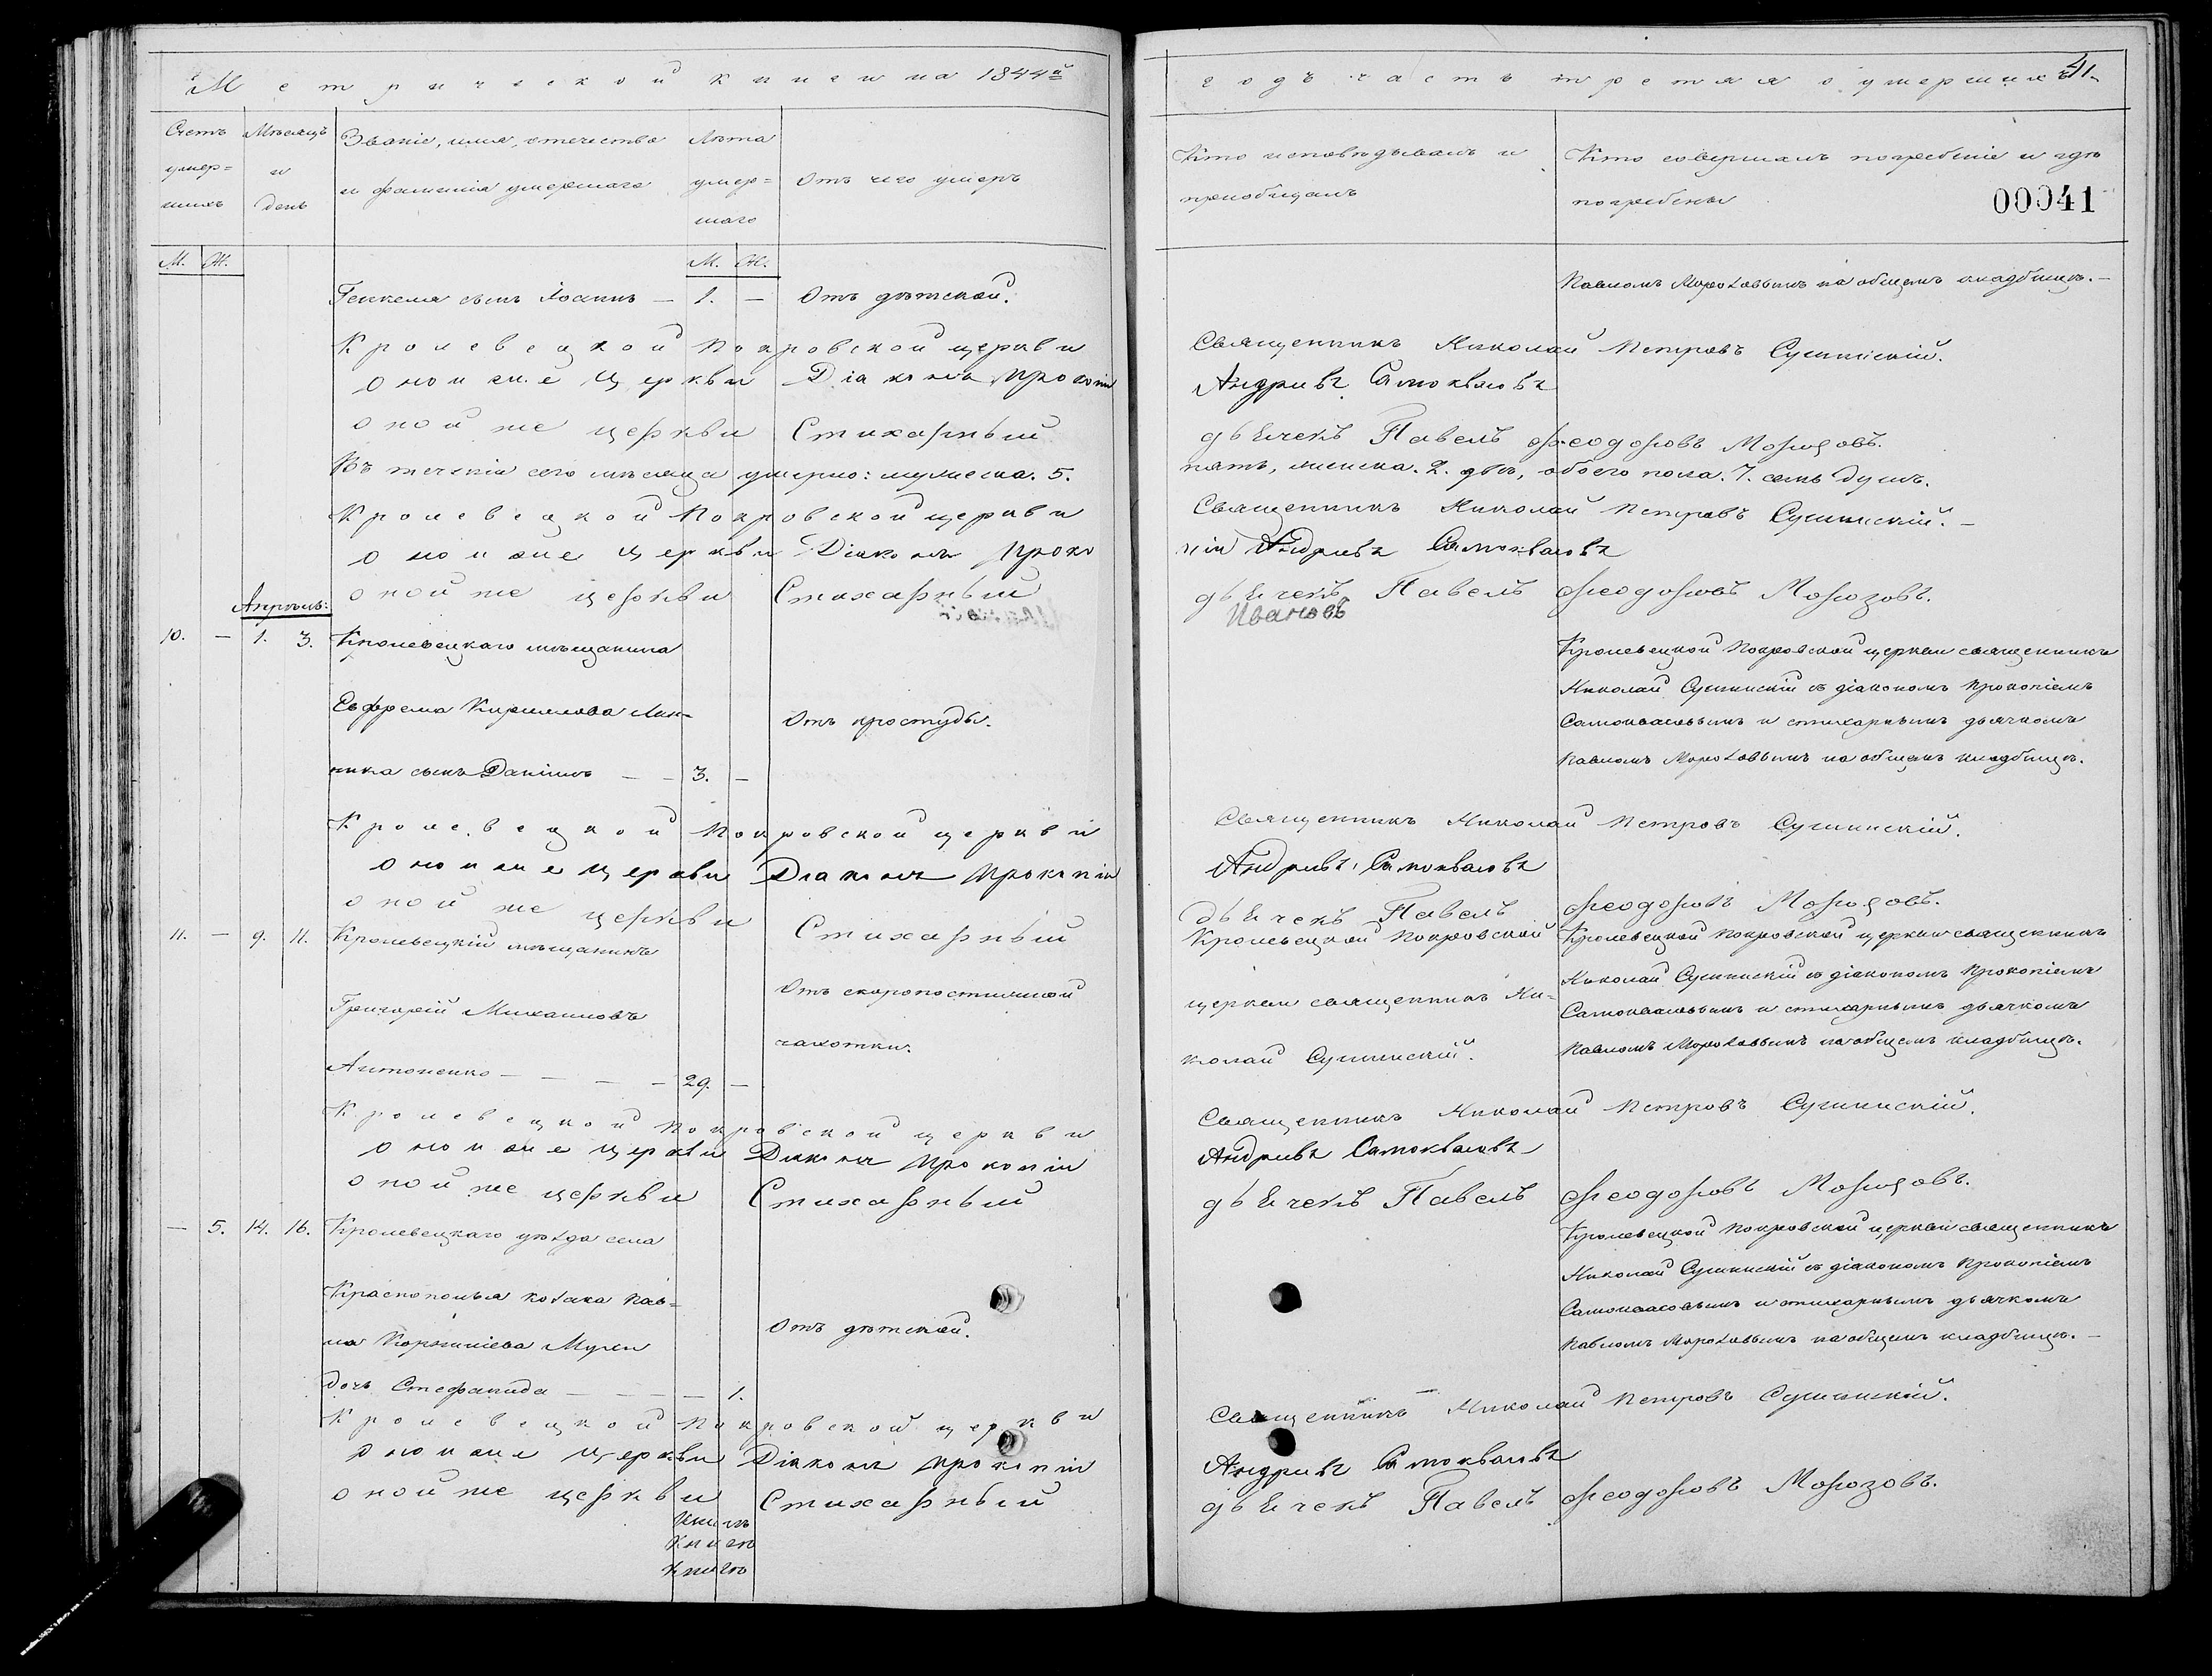 Метрической книги на 1844й
Счетъ умер=шихъ
Мѣсяцъ и день
Званіе, имя, отечество и фамилія умершаго
Лѣта умер=шаго
Отъ чего умеръ
М. Ж.
М. Ж.
сынъ Іоаннъ — 1. — Отъ дѣтской.
Кролевецкой Покровской церкви
оной же церкви Діаконъ Прокопій
оной же церкви Стихарный
Въ теченіи сего мѣсяца умерло: мужеска. 5.
Кролевецкой Покровской церкви
оной же церкви Діаконъ Проко
оной же церкви Стихарный
Апрѣль:
10. — 1. 3. Кролевецкаго мѣщанина
Ефрема Кирилова Лин=
Отъ простуды.
ника сынъ Даніилъ — — 3. —
Кролевецкой Покровской церкви
оной же церкви Діаконъ Прокопій
оной же церкви Стихарный
11. — 9. 11. Кролевецкій мѣщанинъ
Григорій Михаиловъ
Отъ скоропостижной
чахотки.
Антоненко — — — — 29. —
Кролевецкой Покровской церкви
оной же церкви Діаконъ Прокопій
оной же церкви Стихарный
— 5. 14. 16. Кролевецкаго уѣзда села
Краснополья козака Пав=
ла Корниліева Мулен
Отъ дѣтской.
дочь Стефанида — — — — 1.
Кролевецкой Покровской церкви
оной же церкви Діаконъ Прокопій
оной же церкви Стихарный
Книгъ
Книгъ
годъ часть третяя о умершихъ
41.
Кто исповѣдывалъ и пріобщалъ
Кто совершалъ погребеніе и гдѣ погребены
00041
Павломъ Морозовымъ на общемъ кладбищѣ.—
Священникъ Николай Петровъ Сушинскій.
Андріевъ Самоквасовъ
дьячекъ Павелъ Феодоровъ Морозовъ.
пять, женска. 2. двѣ, обоего пола. 7. семь душъ.
Священникъ Николай Петровъ Сушинскій.—
пій Андріевъ Самоквасовъ
дьячекъ Павелъ Феодоровъ Морозовъ.
Ивановъ
Кролевецкой Покровской церкви священникъ
Николай Сушинскій съ діакономъ Прокопіемъ
Самоквасовымъ и стихарнымъ дьячкомъ
Павломъ Морозовымъ на общемъ кладбищѣ.
Священникъ Николай Петровъ Сушинскій.
Андріевъ Самоквасовъ
дьячекъ Павелъ Феодоровъ Морозовъ.
Кролевецкой Покровской
церкви священникъ Ни=
колай Сушинскій.
Кролевецкой Покровской церкви священникъ
Николай Сушинскій съ діакономъ Прокопіемъ
Самоквасовымъ и стихарнымъ дьячкомъ
Павломъ Морозовымъ на общемъ кладбищѣ.
Священникъ Николай Петровъ Сушинскій.
Андріевъ Самоквасовъ
дьячекъ Павелъ Феодоровъ Морозовъ.
Кролевецкой Покровской церкви священникъ
Николай Сушинскій съ діакономъ Прокопіемъ
Самоквасовымъ и стихарнымъ дьячкомъ
Павломъ Морозовымъ на общемъ кладбищѣ.—
Священникъ Николай Петровъ Сушинскій.
Андріевъ Самоквасовъ
дьячекъ Павелъ Феодоровъ Морозовъ.